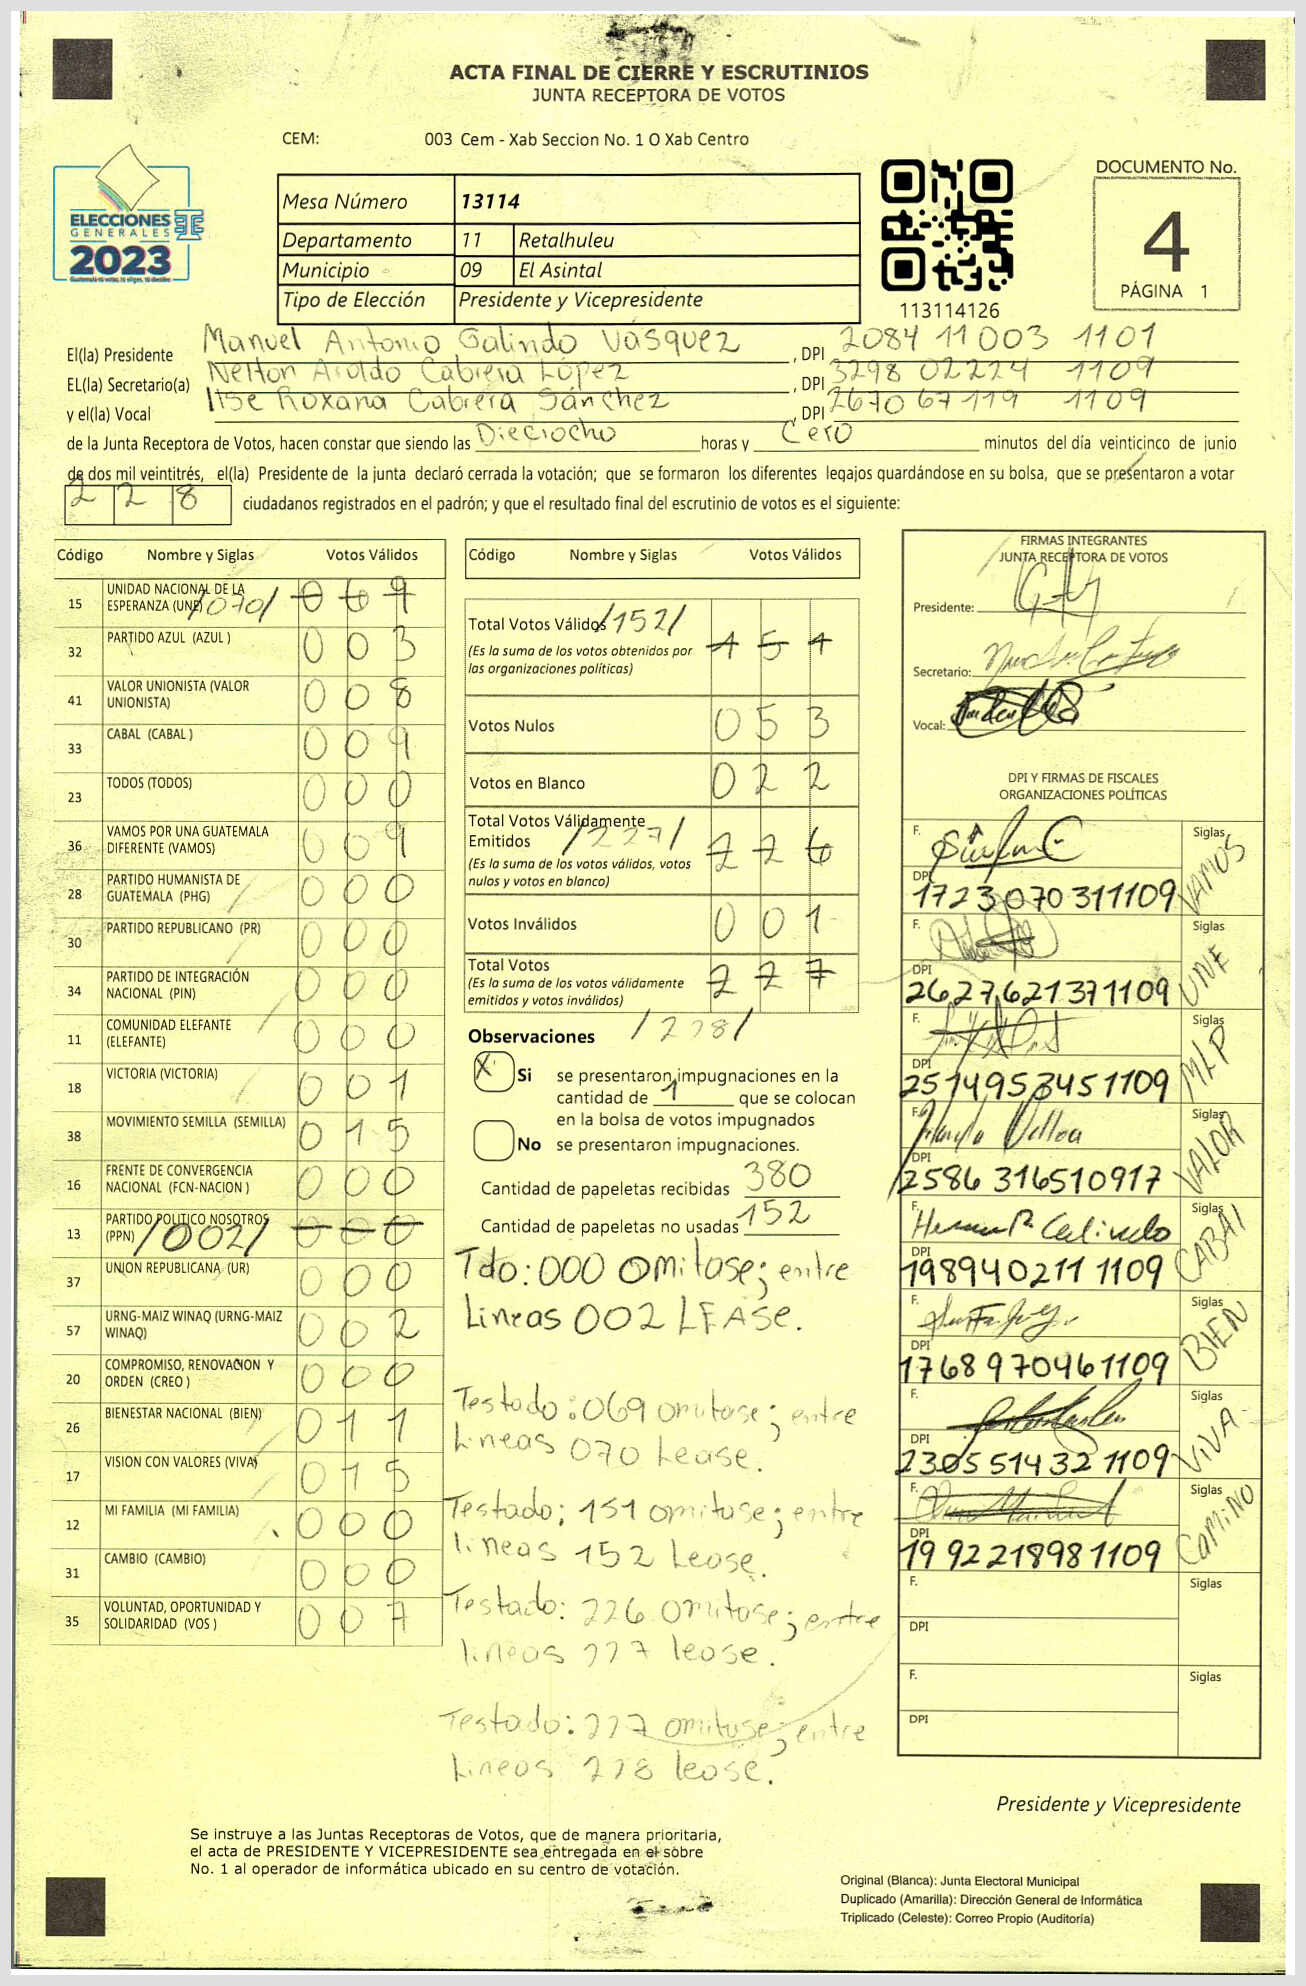 ACTA FINAL DE CIERRE Y ESCRUTINIOS
JUNTA RECEPTORA DE VOTOS
CEM: 003 Cem - Xab Seccion No. 1 O Xab Centro
ELECCIONES
GENERALES
2023
Mesa Número 13114
Departamento 11 Retalhuleu
Municipio 09 El Asintal
Tipo de Elección Presidente y Vicepresidente
113114126
DOCUMENTO No.
4
PÁGINA 1
El(la) Presidente Manuel Antonio Galindo Vásquez, DPI 2084 11003 1101
EL(la) Secretario(a) Nelton Aroldo Cabrera López, DPI 3298 02224 1109
y el(la) Vocal Itse Roxana Cabrera Sánchez, DPI 2670 67119 1109
de la Junta Receptora de Votos, hacen constar que siendo las Dieciocho horas y Cero minutos del día veinticinco de junio
de dos mil veintitrés, el(la) Presidente de la junta declaró cerrada la votación; que se formaron los diferentes legajos quardándose en su bolsa, que se presentaron a votar
228 ciudadanos registrados en el padrón; y que el resultado final del escrutinio de votos es el siguiente:
Código Nombre y Siglas Votos Válidos
15 UNIDAD NACIONAL DE LA
ESPERANZA (UNE) /070/ 069
32 PARTIDO AZUL (AZUL ) 003
41 VALOR UNIONISTA (VALOR
UNIONISTA) 008
33 CABAL (CABAL ) 009
23 TODOS (TODOS) 000
36 VAMOS POR UNA GUATEMALA
DIFERENTE (VAMOS) 009
28 PARTIDO HUMANISTA DE
GUATEMALA (PHG) 000
30 PARTIDO REPUBLICANO (PR) 000
34 PARTIDO DE INTEGRACIÓN
NACIONAL (PIN) 000
11 COMUNIDAD ELEFANTE
(ELEFANTE) 000
18 VICTORIA (VICTORIA) 001
38 MOVIMIENTO SEMILLA (SEMILLA) 015
16 FRENTE DE CONVERGENCIA
NACIONAL (FCN-NACION ) 000
13 PARTIDO POLITICO NOSOTROS
(PPN) /002/ 000
37 UNION REPUBLICANA (UR) 000
57 URNG-MAIZ WINAQ (URNG-MAIZ
WINAQ) 002
20 COMPROMISO, RENOVACION Y
ORDEN (CREO ) 000
26 BIENESTAR NACIONAL (BIEN) 011
17 VISION CON VALORES (VIVA) 015
12 MI FAMILIA (MI FAMILIA) 000
31 CAMBIO (CAMBIO) 000
35 VOLUNTAD, OPORTUNIDAD Y
SOLIDARIDAD (VOS ) 007
Código Nombre y Siglas Votos Válidos
Total Votos Válidos /152/ 151
(Es la suma de los votos obtenidos por
las organizaciones políticas)
Votos Nulos 053
Votos en Blanco 022
Total Votos Válidamente
Emitidos /227/ 226
(Es la suma de los votos válidos, votos
nulos y votos en blanco)
Votos Inválidos 001
Total Votos 227
(Es la suma de los votos válidamente
emitidos y votos inválidos)
/228/
Observaciones
X Si se presentaron impugnaciones en la
cantidad de 1 que se colocan
en la bolsa de votos impugnados
No se presentaron impugnaciones.
Cantidad de papeletas recibidas 380
Cantidad de papeletas no usadas 152
Tdo: 000 omitase; entre
Lineas 002 LEASE.
Testado: 069 omitase; entre
Lineas 070 Lease.
Testado: 151 omitase; entre
lineas 152 Lease.
Testado: 226 omitase; entre
lineas 227 lease.
Testado: 227 omitase; entre
Lineas 228 lease.
FIRMAS INTEGRANTES
JUNTA RECEPTORA DE VOTOS
Presidente:
Secretario:
Vocal:
DPI Y FIRMAS DE FISCALES
ORGANIZACIONES POLÍTICAS
F. Siglas
DPI 1723070311109 VAMOS
F. Siglas
DPI 2627621371109 UNE
F. Siglas
DPI 2514953451109 MLP
F. Siglas
DPI 2586316510917 VALOR
F. Siglas
DPI 1989402111109 CABAL
F. Siglas
DPI 1768970461109 BIEN
F. Siglas
DPI 2305514321109 VIVA
F. Siglas
DPI 1992218981109 CAMINO
F. Siglas
DPI
F. Siglas
DPI
Presidente y Vicepresidente
Se instruye a las Juntas Receptoras de Votos, que de manera prioritaria,
el acta de PRESIDENTE Y VICEPRESIDENTE sea entregada en el sobre
No. 1 al operador de informática ubicado en su centro de votación.
Original (Blanca): Junta Electoral Municipal
Duplicado (Amarilla): Dirección General de Informática
Triplicado (Celeste): Correo Propio (Auditoría)